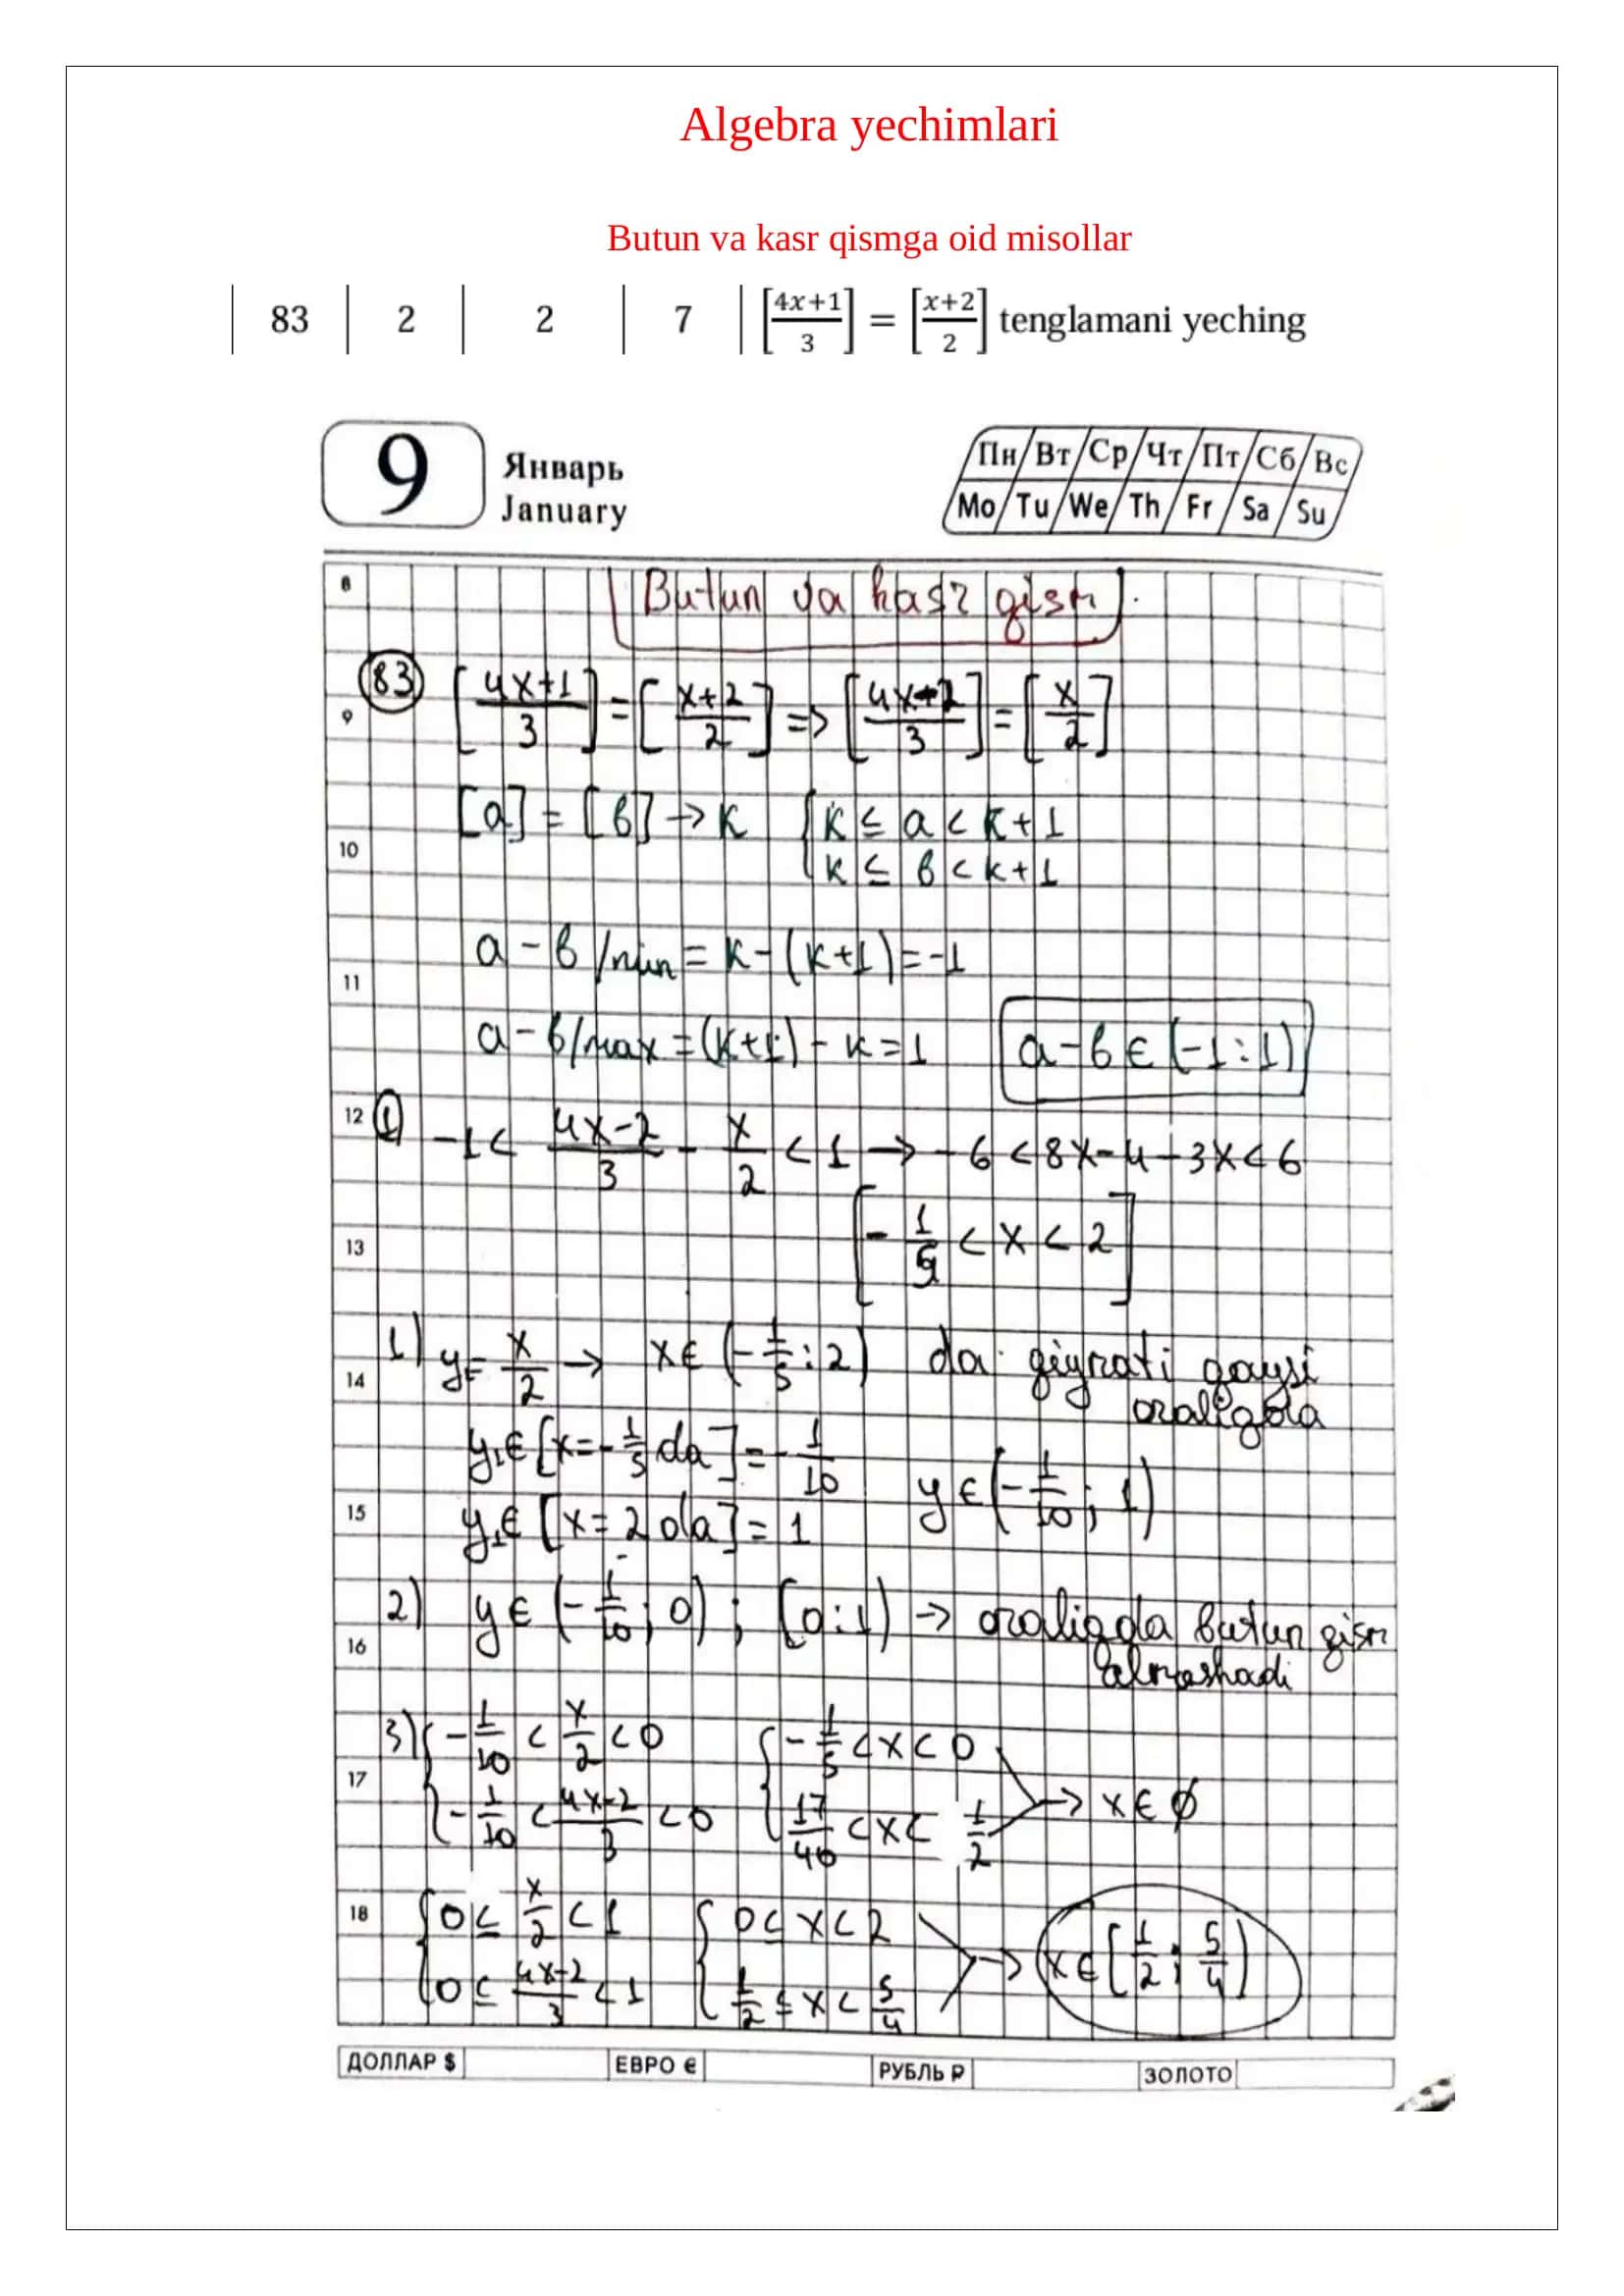 Algebra yechimlari
Butun va kasr qismga oid misollar
83 | 2 | 2 | 7 | [(4x+1)/3] = [(x+2)/2] tenglamani yeching
9 Январь January
Пн Вт Ср Чт Пт Сб Вс
Mo Tu We Th Fr Sa Su
8 Butun va kasr qism.
83 [(4x+1)/3] = [(x+2)/2] => [(4x-2)/3] = [x/2]
9
[a] = [b] → k { k ≤ a < k+1
10 k ≤ b < k+1
a - b /min = k - (k+1) = -1
11
a - b /max = (k+1) - k = 1 a - b ∈ (-1 : 1)
12 ① -1 < (4x-2)/3 - x/2 < 1 → -6 < 8x - 4 - 3x < 6
13 [-1/5 < x < 2]
1) y = x/2 → x ∈ (-1/5 : 2) da qiymati qaysi
14 oraliqda
y₁ ∈ [x = -1/5 da] = -1/10 y ∈ (-1/10 ; 1)
15 y₁ ∈ [x = 2 da] = 1
2) y ∈ (-1/10 ; 0) ; [0 : 1) → oraliqda butun qism
16 almashadi
3) { -1/10 < x/2 < 0 { -1/5 < x < 0
17 → x ∈ ∅
-1/10 < (4x-2)/3 < 0 17/40 < x < 1/2
18 { 0 ≤ x/2 < 1 { 0 ≤ x < 2 → x ∈ [1/2 ; 5/4)
0 ≤ (4x-2)/3 < 1 1/2 ≤ x < 5/4
ДОЛЛАР $ ЕВРО € РУБЛЬ ₽ ЗОЛОТО